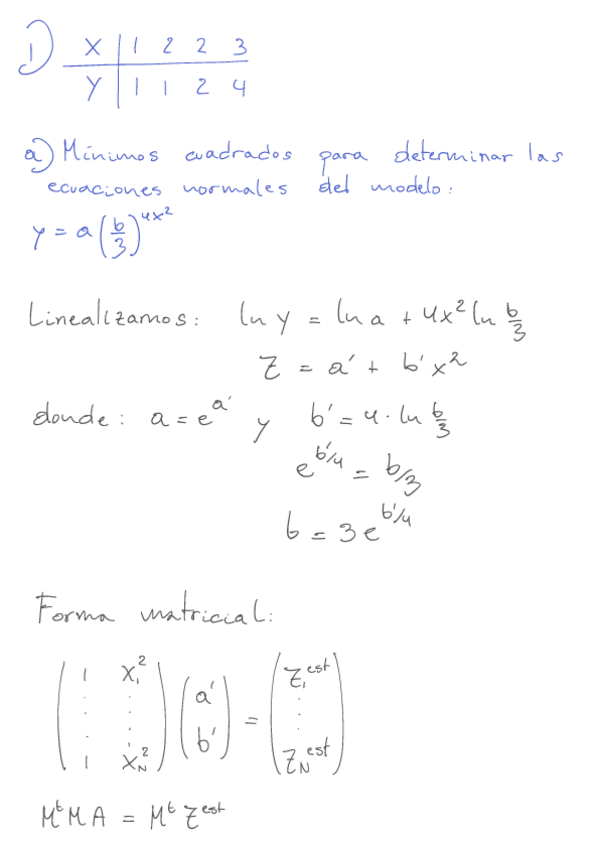 1) X | 1 2 2 3
Y | 1 1 2 4
a) Mínimos cuadrados para determinar las
ecuaciones normales del modelo:
y = a(b/3)^4x²
Linealizamos: ln y = ln a + 4x² ln b/3
Z = a' + b'x²
donde: a = e^a' y b' = 4 · ln b/3
e^b'/4 = b/3
b = 3e^b'/4
Forma matricial:
(1 X₁² ⋮ ⋮ 1 X_N²) (a' b') = (Z₁^est ⋮ Z_N^est)
M^t M A = M^t Z^est